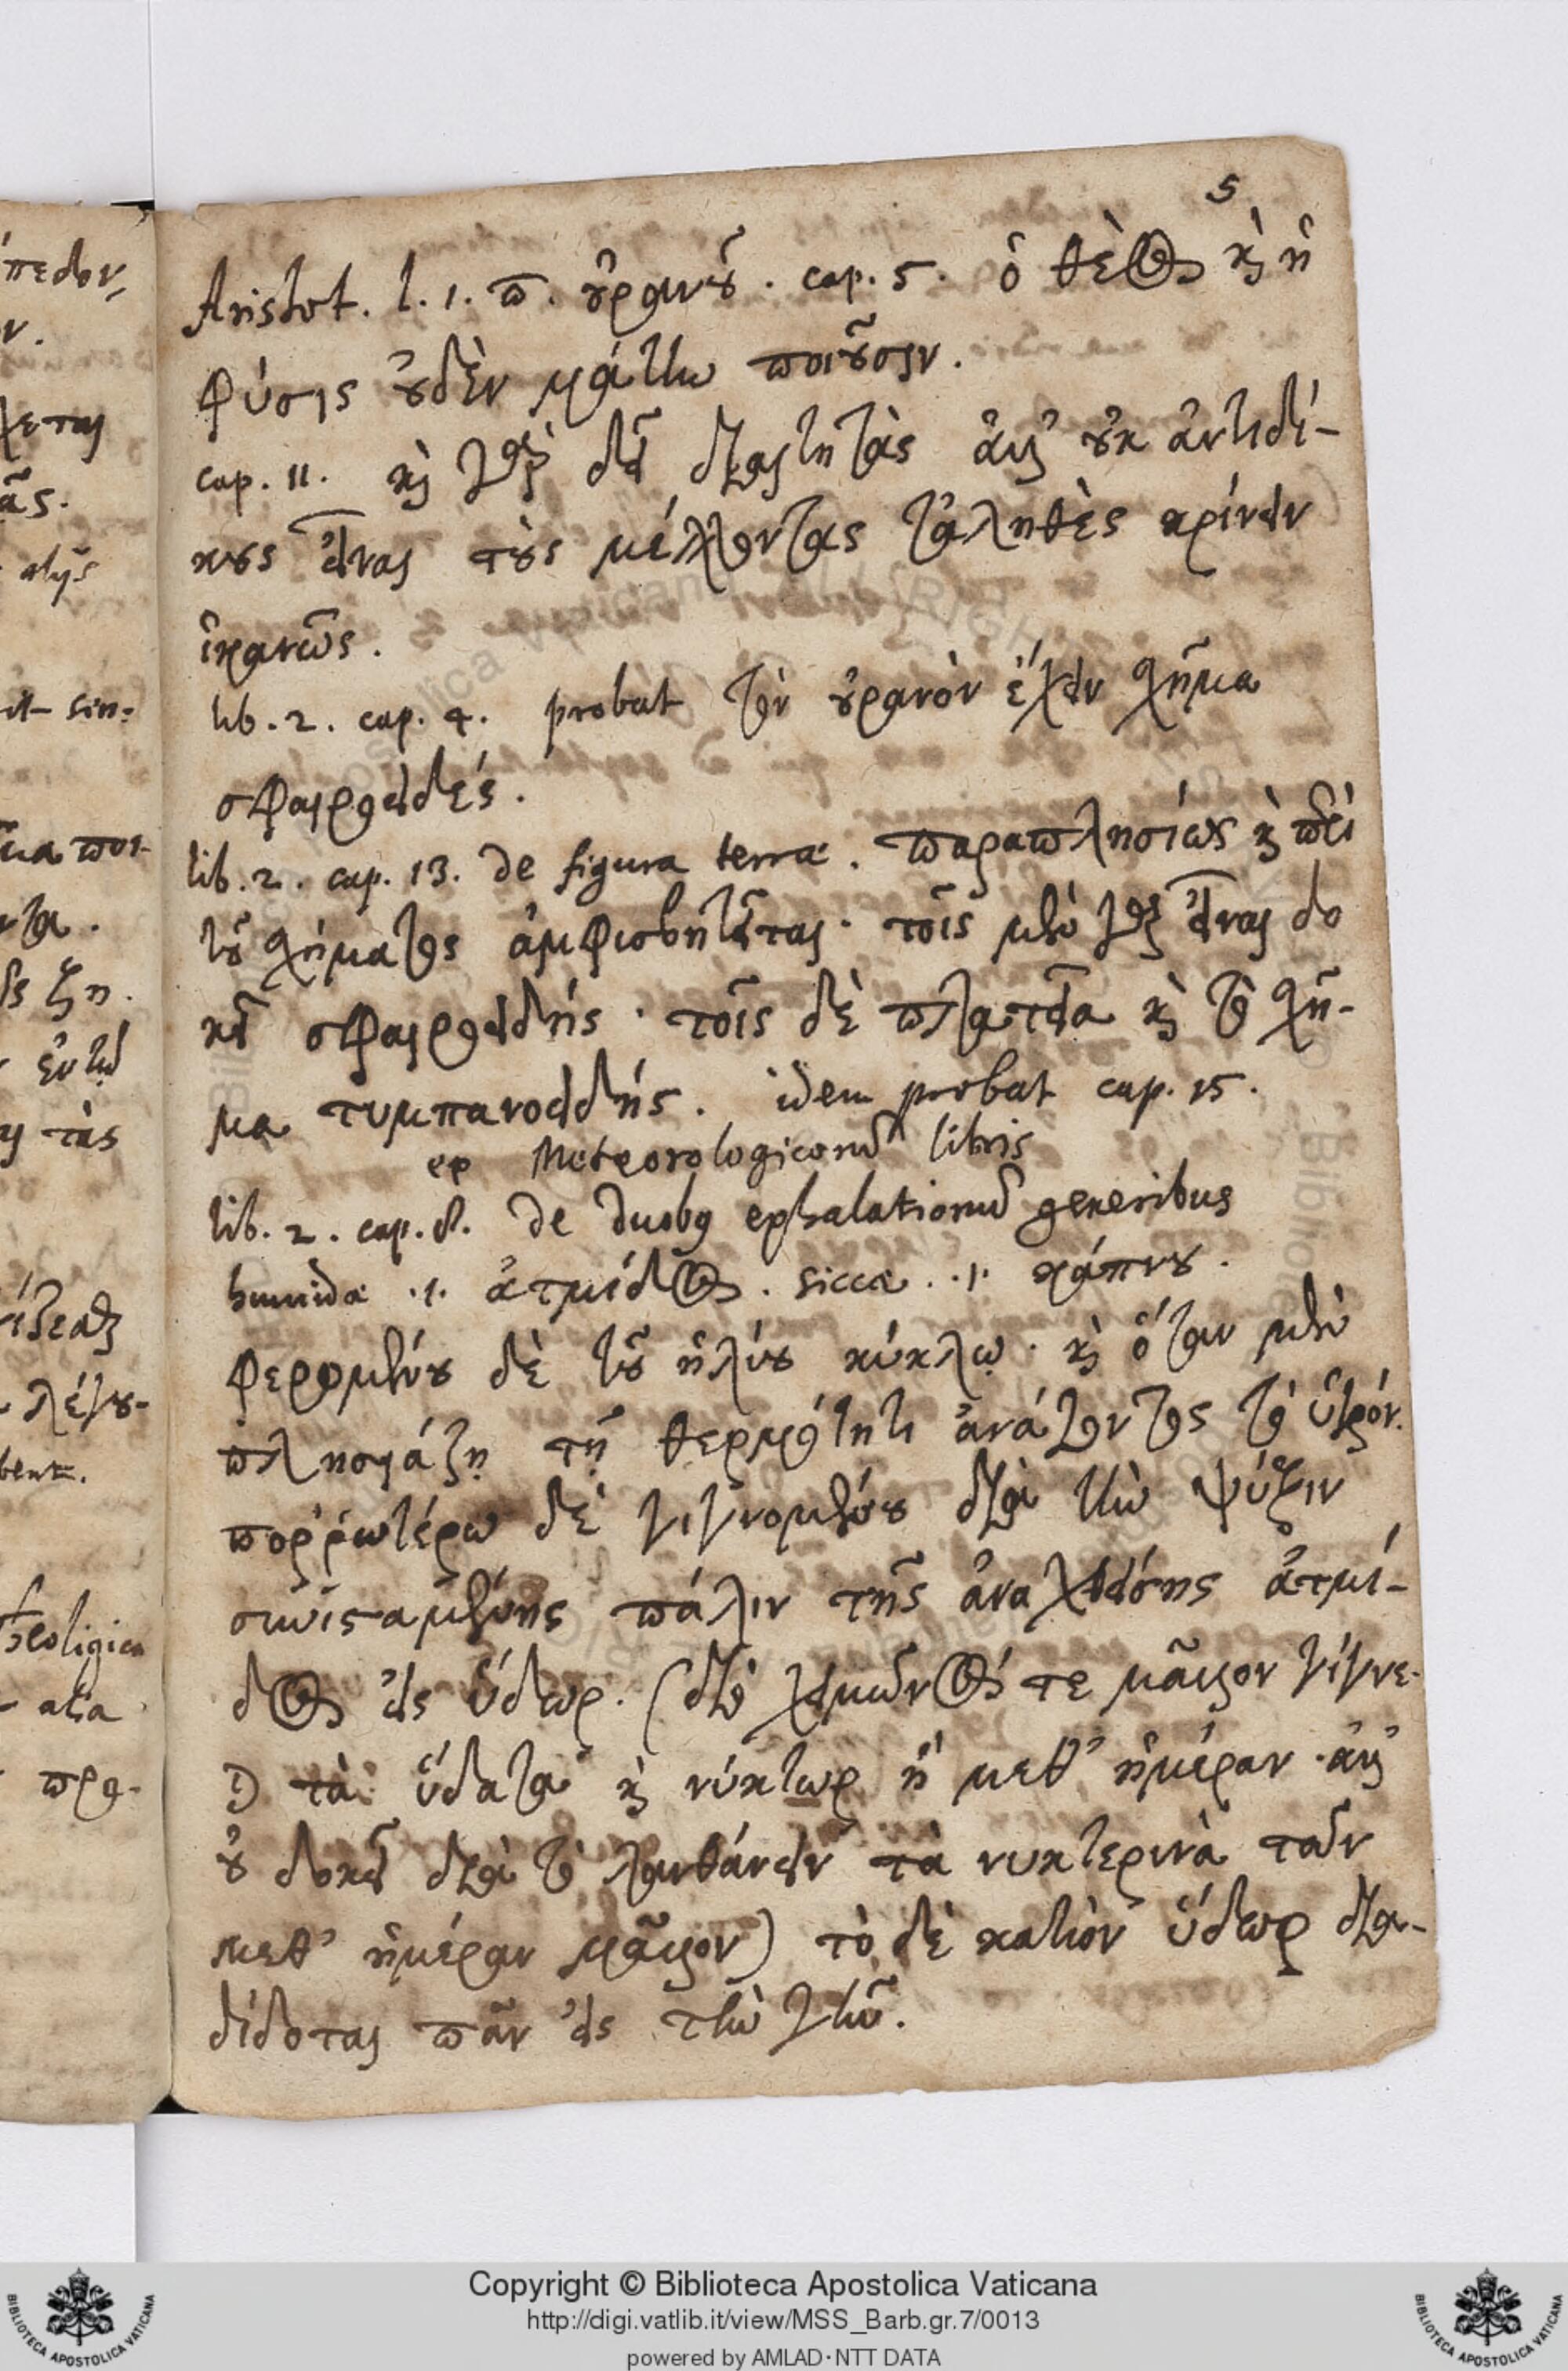 5
Aristot. l. 1. π. οὐρανοῦ. cap. 5. ὁ θεὸς καὶ ἡ
φύσις οὐδὲν μάτην ποιοῦσιν.
cap. 11. καὶ γὰρ δεῖ διαιτητὰς ἀλλ' οὐκ ἀντιδί-
κους εἶναι τοὺς μέλλοντας τἀληθὲς κρίνειν
ἱκανῶς.
lib. 2. cap. 4. probat τὸν οὐρανὸν ἔχειν σχῆμα
σφαιροειδές.
lib. 2. cap. 13. de figura terrae. παραπλησίως καὶ περὶ
τοῦ σχήματος ἀμφισβητεῖται· τοῖς μὲν γὰρ εἶναι δο
κεῖ σφαιροειδής· τοῖς δὲ πλατεῖα καὶ τὸ σχῆ-
μα τυμπανοειδής. idem probat cap. 15.
ex Meteorologicorum libris
lib. 2. cap. 4. de duobus exhalationum generibus
humida .i. ἀτμίδος. sicca .i. κάπνου.
φερομένου δὲ τοῦ ἡλίου κύκλῳ· καὶ ὅταν μὲν
πλησιάζῃ τῇ θερμότητι ἀνάγοντος τὸ ὑγρόν.
πορρωτέρω δὲ γιγνομένου διὰ τὴν ψύξιν
συνισταμένης πάλιν τῆς ἀναχθείσης ἀτμί-
δος εἰς ὕδωρ. (διὸ χειμῶνός τε μᾶλλον γίγνε-
ται τὰ ὕδατα καὶ νύκτωρ ἢ μεθ' ἡμέραν· ἀλλ'
οὐ δοκεῖ διὰ τὸ λανθάνειν τὰ νυκτερινὰ τῶν
μεθ' ἡμέραν μᾶλλον) τὸ δὲ κατιὸν ὕδωρ δια-
δίδοται πᾶν εἰς τὴν γῆν.
Copyright © Biblioteca Apostolica Vaticana
http://digi.vatlib.it/view/MSS_Barb.gr.7/0013
powered by AMLAD·NTT DATA
BIBLIOTECA APOSTOLICA VATICANA
BIBLIOTECA APOSTOLICA VATICANA